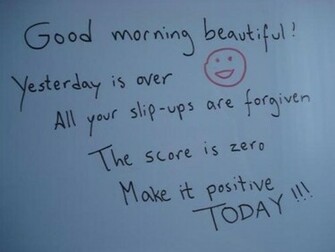 Good morning beautiful!
Yesterday is over
All your slip-ups are forgiven
The score is zero
Make it positive
TODAY!!!